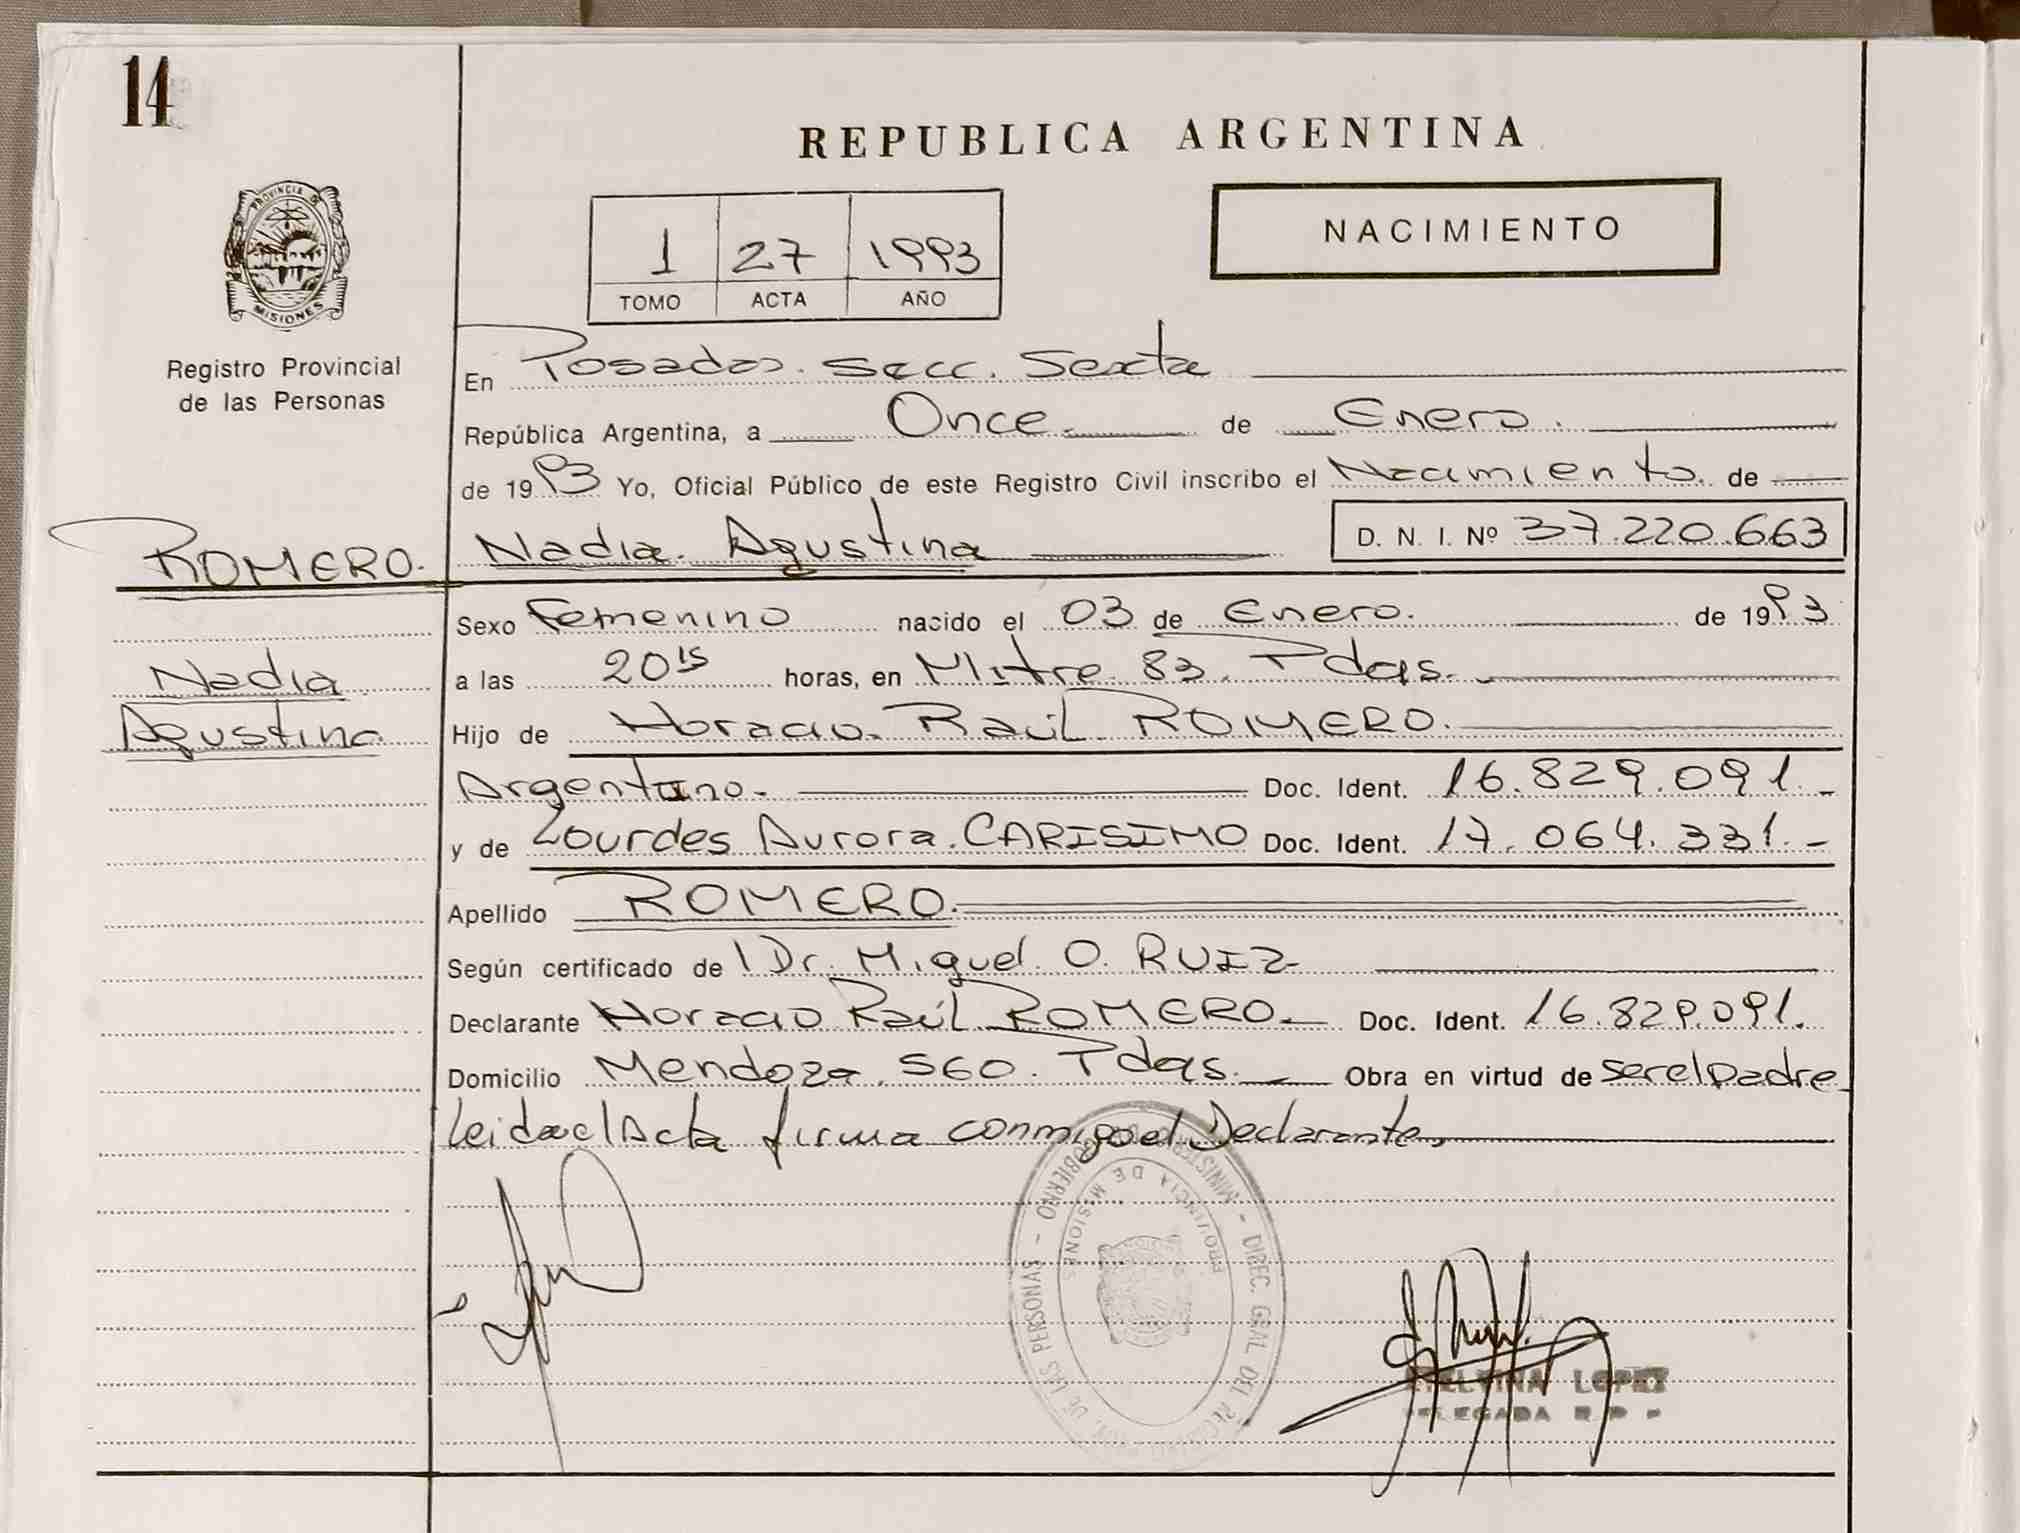 14
REPUBLICA ARGENTINA
PROVINCIA DE
MISIONES
Registro Provincial
de las Personas
1 27 1993
TOMO ACTA AÑO
NACIMIENTO
En Posadas. Secc. Sexta
República Argentina, a Once. de Enero.
de 1993 Yo, Oficial Público de este Registro Civil inscribo el Nacimiento. de
ROMERO. Nadia Agustina D. N. I. Nº 37.220.663
Sexo Femenino nacido el 03 de Enero. de 1993
Nadia
Agustina
a las 20 15 horas, en Mitre 83. Pdas.
Hijo de Horacio Raúl ROMERO.
Argentino. Doc. Ident. 16.829.091.
y de Lourdes Aurora CARISIMO Doc. Ident. 17.064.331.
Apellido ROMERO.
Según certificado de Dr. Miguel O. RUIZ
Declarante Horacio Raúl ROMERO. Doc. Ident. 16.829.091.
Domicilio Mendoza 560. Pdas. Obra en virtud de ser el padre
Leida el Acta firma conmigo el Declarante,
MINISTERIO DE GOBIERNO - DIREC. GRAL DEL REGISTRO PROV. DE LAS PERSONAS
PROVINCIA DE MISIONES
LOPEZ
DELEGADA R. P. P.